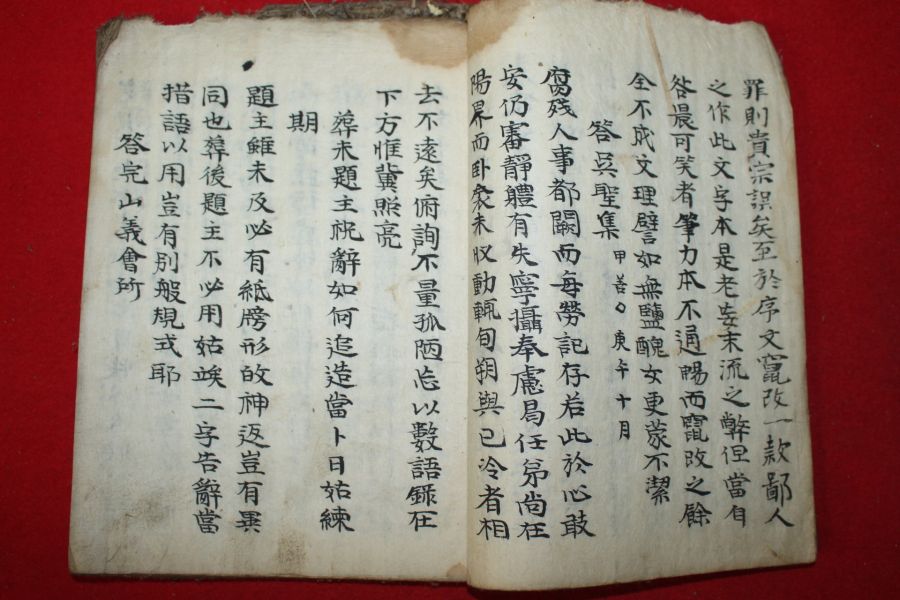 罪則貴宗誤矣至於序文竄改一款鄙人
之作此文字本是老妄末流之弊但當自
咎晨可笑者筆力本不通暢而竄改之餘
全不成文理譬如無鹽醜女更蒙不潔
答吳聖集 甲 庚午十月
腐殘人事都闕而每勞記存若此於心敢
安仍審靜體有失寧攝奉慮曷任弟尚在
陽界而卧衾未收動輒旬朔與已冷者相
去不遠矣俯詢不量孤陋忘以數語錄在
下方惟冀照亮
葬未題主祝辭如何追造當卜日姑練
期
題主雖未及必有紙牓形的神返豈有異
同也葬後題主不必用姑竢二字告辭當
措語以用豈有別般規式耶
答完山義會所